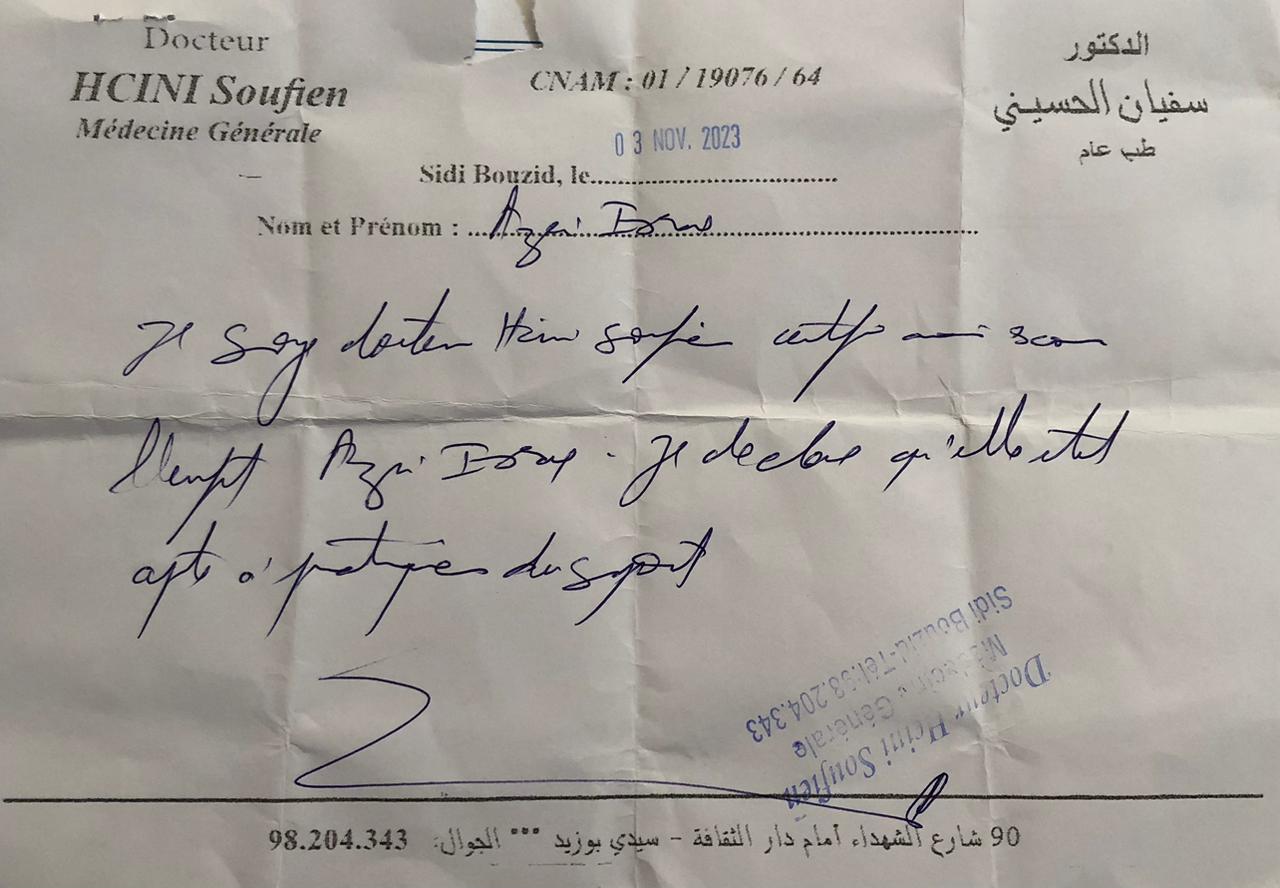 Docteur
HCINI Soufien
Médecine Générale
CNAM : 01 / 19076 / 64
الدكتور
سفيان الحسيني
طب عام
03 NOV. 2023
Sidi Bouzid, le
Nom et Prénom : Azri
Je docteur Hcini Soufien certifie avoir
Azri Je declare qu'elle est
apte à pratiquer du sport
Docteur Hcini Soufien
Médecine Générale
Sidi Bouzid-Tél:98.204.343
90 شارع الشهداء أمام دار الثقافة - سيدي بوزيد *** الجوال: 98.204.343